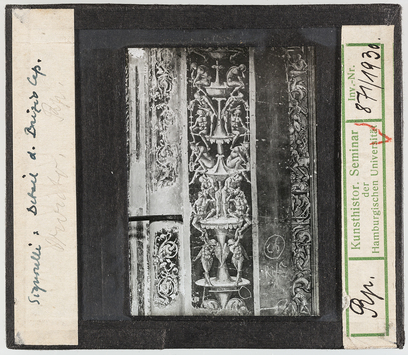 Signorelli: Detail d. Brizio Cap.
Kunsthistor. Seminar
der
Hamburgischen Universität
Inv.-Nr.
87/1930
Rp.